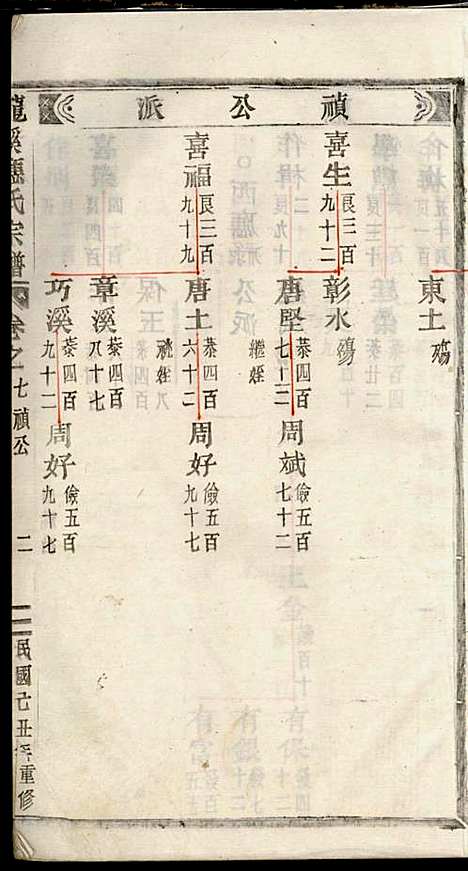 禎公派
東土 殤
喜生 良三百九十二
彰水 殤
唐堅 恭四百七十二
周斌 儉五百七十二
繼姪
喜福 良三百九十九
唐土 恭四百六十二
周好 儉五百九十七
章溪 恭四百八十七
巧溪 恭四百九十二
周好 儉五百九十七
氏宗譜 卷之七 禎公 二 民國己丑年重修